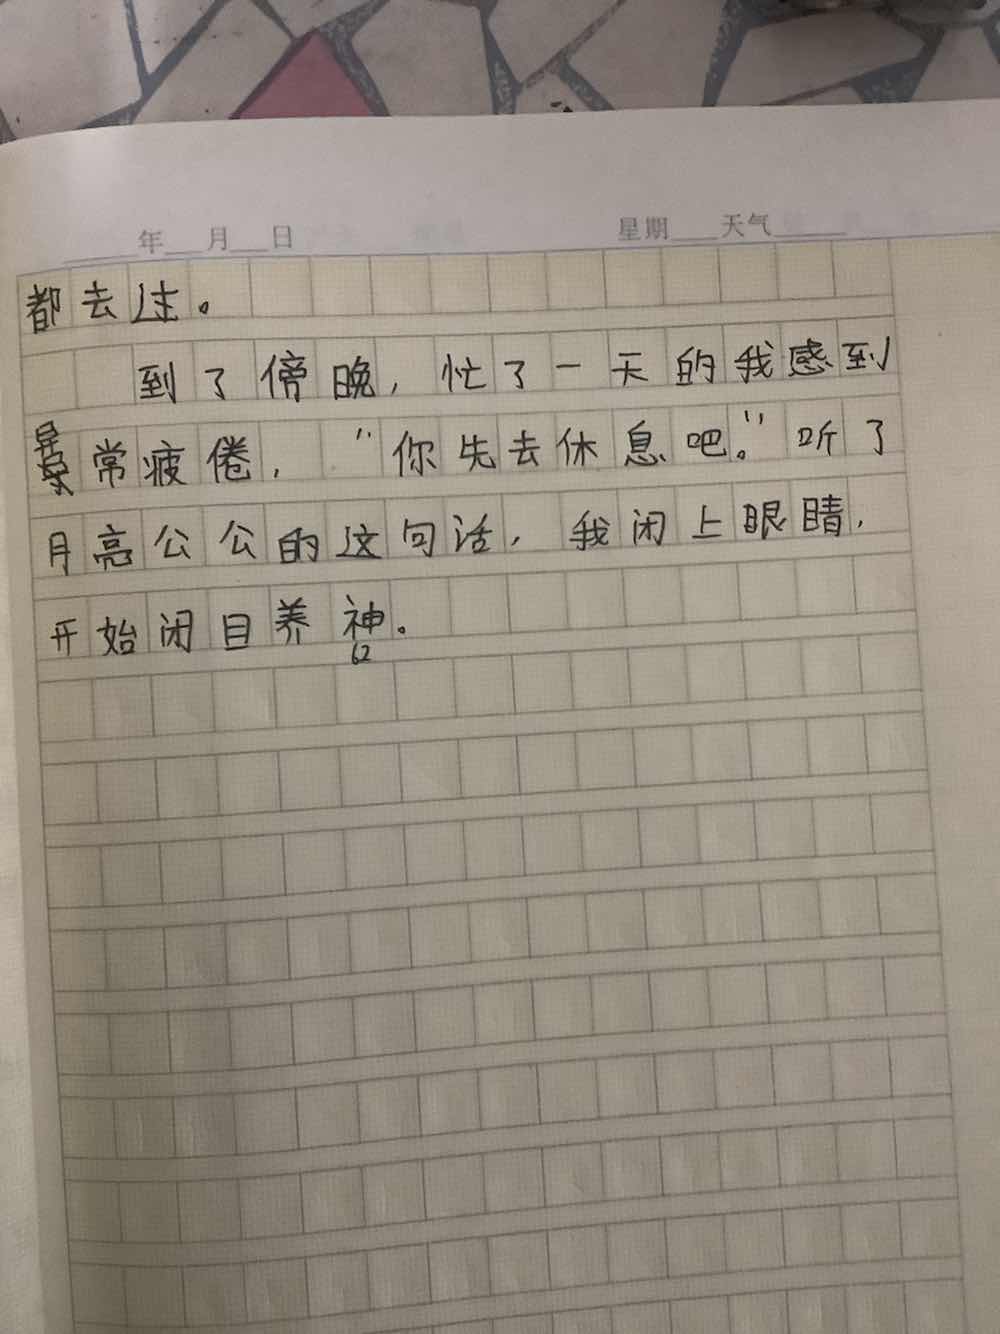 年 月 日 星期 天气
都去过。
到了傍晚，忙了一天的我感到
异常疲倦，“你先去休息吧。”听了
月亮公公的这句话，我闭上眼睛，
开始闭目养神。
62